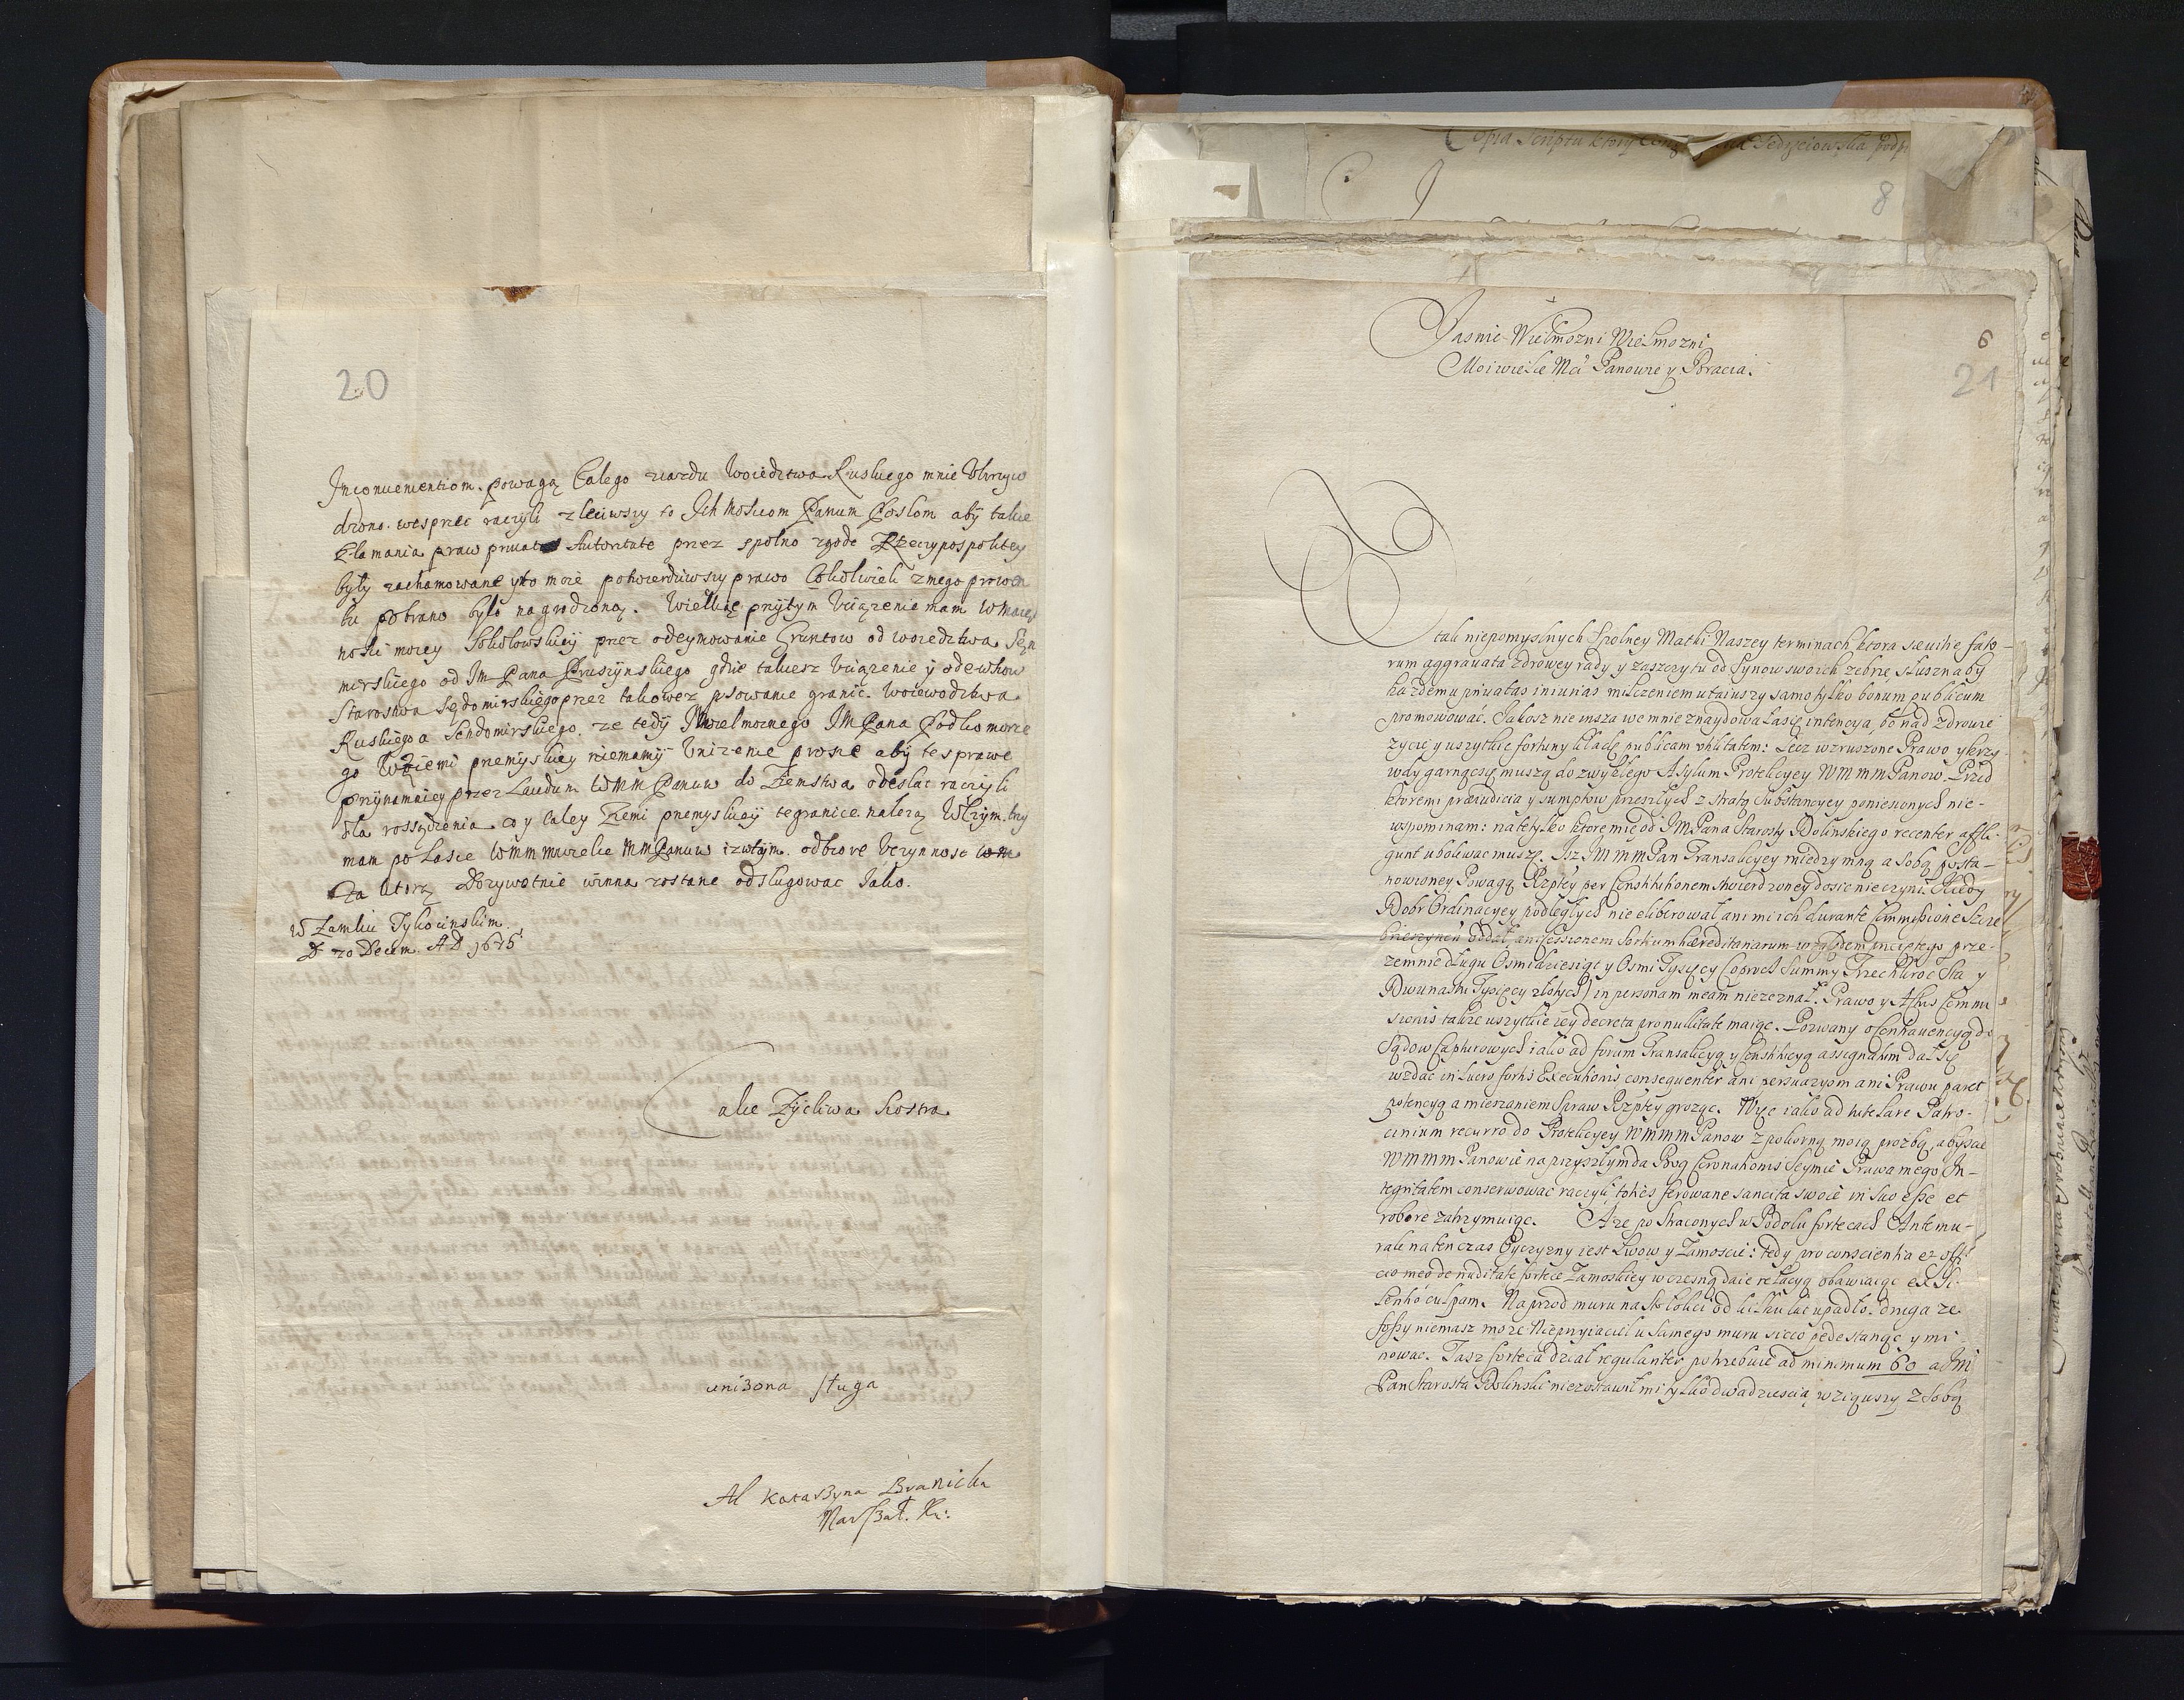 20
Inconuenientiom. powagą Całego ziazdu Woiedztwa Ruskiego mnie Vkrzyw
dzono. wesprzec raczyli zleciwszy to Ich Mosciom Panum Posłom aby takie
złamania praw Autoritate przez spolno zgode Rzeczypospolitey
były zachamowane yto moie potwierdziwszy prawo Cokolwiek zmego prowen
tu pobrano było nagrodzoną. Wielkię przytym Uciązenie mam WMaięt
nosci moiey Sokołowskiey przez odeymowanie Gruntow od woiedztwa Sęn
mirskiego od Im Pana Pruszynskiego gdzie takiesz Uciązenie y odewkow
Starostwa Sędomirskiego przez takowez psowanie granic. Woiewodztwa
Ruskiego a Sendomirskiego. ze tedy IWielmoznego IMPana Podkomorze
go WZiemi przemyskiey niemamy Unizenie prosze aby te sprawe
przynamniey przez Laudum WMM Panuw do Ziemstwa odesłac raczyli
dla rossądzenia co y całey Ziemi przemyskiey te granice nalezą Wktrzym
mam po Łasce WMM Mwielce MMPanuw izwtym. odbiore Uczynnosc
Za ktorą Dozywotnie winna zostane odsługowac Jako.
W Zamku Tykocinskim
D 20 Decem. AD 1675
Całe Zyczliwa Siostra
uniзona sługa
Al Katarзyna Branicka
Marsзał. Kr:
Copia Scriptu ktory
8
Jasnie Wielmozni Wielmozni
Moi wielce Mci Panowie y Bracia.
6
21
W tak niepomyslnych Spolney Matki Naszey terminach, ktora sæuitie fato-
rum aggrauata zdrowey rady y zaszczytu od Synow swoich zebrze, słuszna by
kazdemu priuatas iniurias milczeniem utaiwszy samo tylko bonum publicum
promowować. Jakosz nie insza we mnie znaydowała się intencya, bo nad zdrowie
zycie y wszytkie fortuny kłade publicam vtilitatem: Lecz wzruszone Prawo y krzy-
wdy garnącsię muszą do zwykłego Asylum Protekcyey WMMM Panow. Przed
ktoremi præiudicia y sumptow przeszłych z stratą Substancyey poniesionych nie-
wspominam: na te tylko ktore mię od JMPana Starosty Dolinskiego recenter affli-
gunt ubolewac muszę. Isz JMMMPan Transakcyey miedzy mną a sobą posta-
nowioney Powagą Rzptey per Constitutionem stwierdzoney dosic nie czyni. Kiedy
Dobr Ordinacyey podległych nie eliberował ani mi ich durante Commissione Szcze
brzeszynen oddał, ani cessionem sortium hæreditariarum względem przyiętego prze-
zemnie długu Osmidziesiąt y Osmi Tysięcy (oprocz Summy Trzechkroc Sta y
Dwunastu Tysięcy złotych) in personam meam niezeznał. Prawo y Actus Commi
sionis także wszytkie iey decreta pro nullitate maiąc. Pozwany o contrauencyą do
Sądow Capturowych iako ad forum Transakcyą y Constitucyą assignatum dał się
wzdac in lucro fortis Executionis consequenter ani perswazyom ani Prawu paret
potencyą a mieszaniem Spraw Rzptey grożąc. Więc iako ad tutelare Patro-
cinium recurro do Protekcyey WMMMPanow z pokorną moią prozbą, abyscie
WMMMPanowie na przyszłym da Bog Coronationis Seymie Prawa mego In-
tegritatem conserwowac raczyli, toties ferowane sancita swoie in suo esse et
robore zatrzymuiąc. A ze po straconych w Podolu fortecach Antemu-
rale na ten czas Oyczyzny iest Lwow y Zamoscie: tedy pro conscientia ex offi-
cio meo de nuditate fortece Zamoskiey wczesną daię relacyą obawiaiąc ex si-
lentio culpam. Naprzod muru na sto łokci od kilku lat upadło. druga ze
fossy niemasz moze Nieprzyiaciel u samego muru sicco pede stanąc y mi-
nowac. Tasz forteca dział regulariter potrzebuie ad minimum 60 a JMi
Pan Starosta Dolinski niezostawił mi tylko dwadziescia wziąwszy z sobą